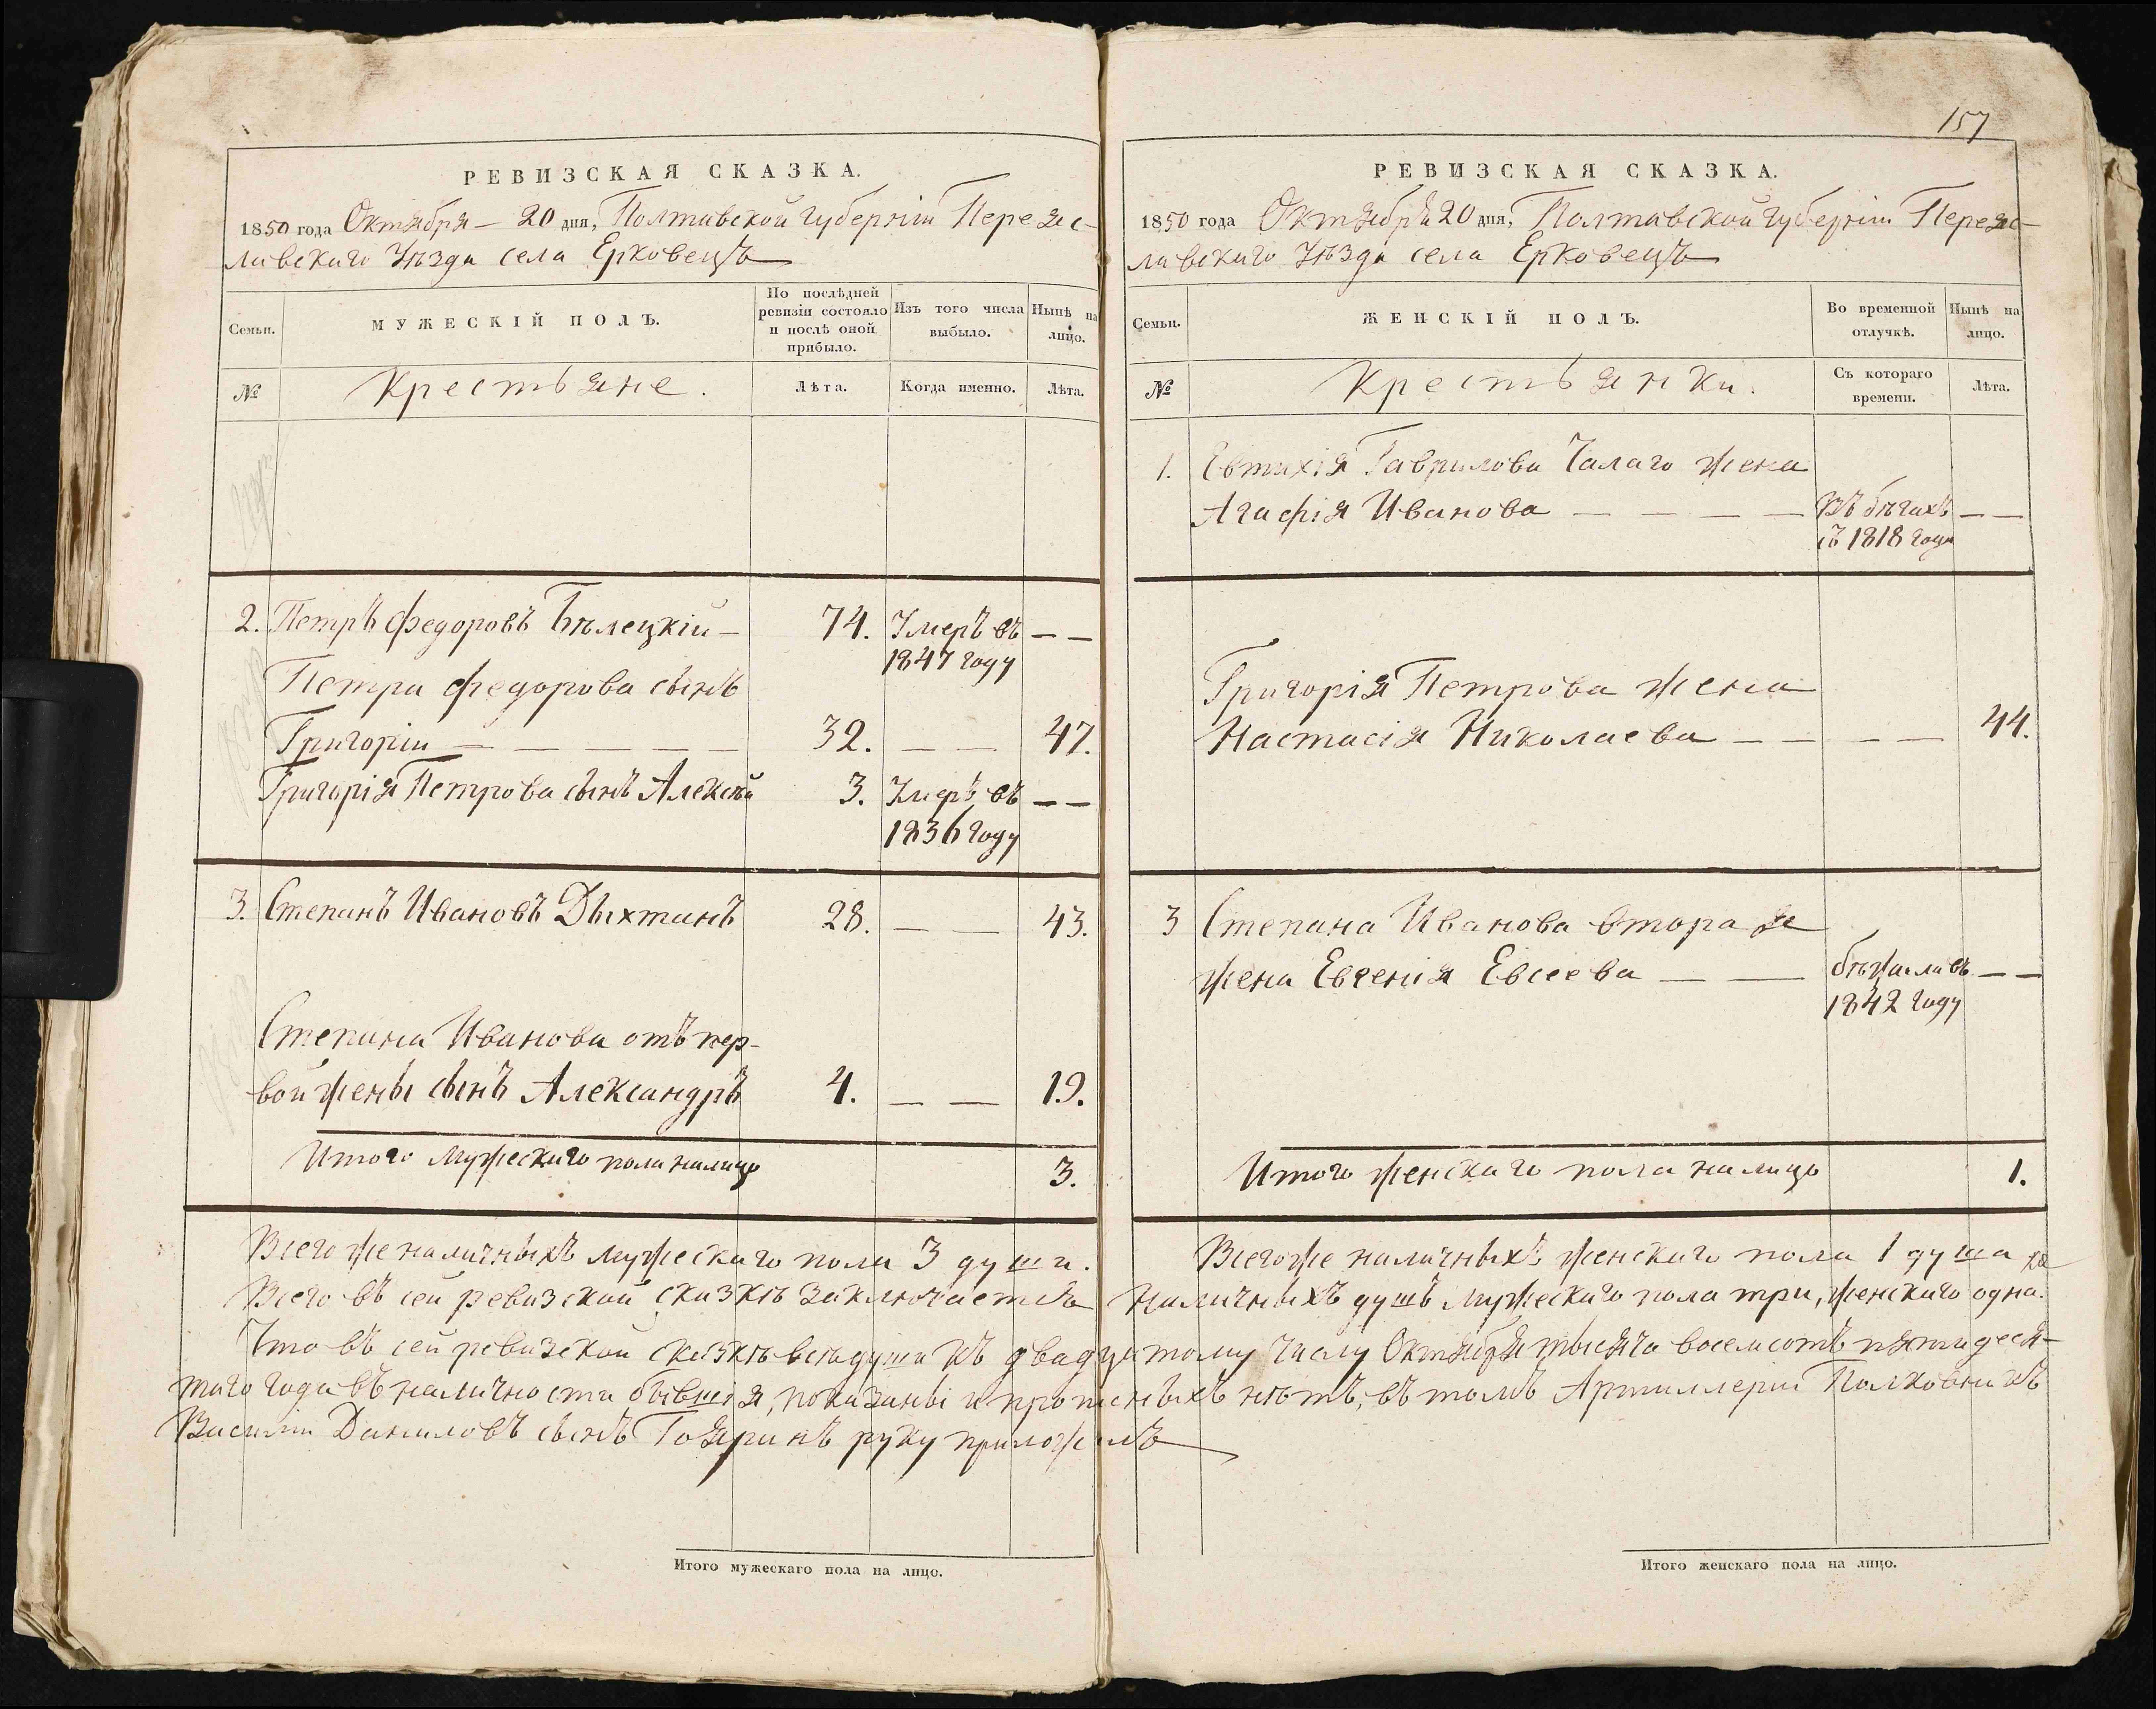 РЕВИЗСКАЯ СКАЗКА.
1850 года Октября — 20 дня, Полтавской Губерніи Переяс-
лавскаго Уѣзда села Ерковецъ
Семьи.
МУЖЕСКІЙ ПОЛЪ.
По послѣдней
ревизіи состояло
и послѣ оной
прибыло.
Изъ того числа
выбыло.
Нынѣ на
лицо.
№
Крестьяне.
Лѣта.
Когда именно.
Лѣта.
2. Петръ Федоровъ Бѣлецкій — 74. Умеръ въ — —
1847 году
Петра Федорова сынъ
Григорій — — — — — 32. — — 47.
Григорія Петрова сынъ Алексѣй 3. Умеръ въ — —
1836 году
3. Степанъ Ивановъ Дыхтанъ 28. — — 43.
Степана Иванова отъ пер-
вой жены сынъ Александръ 4. — — 19.
Итого Мужескаго пола налицо 3.
Всего же наличныхъ мужескаго пола 3 души.
Всего въ сей ревизской сказкѣ заключается
157
РЕВИЗСКАЯ СКАЗКА.
1850 года Октября 20 дня, Полтавской Губерніи Переяс-
лавскаго Уѣзда села Ерковецъ
Семьи.
ЖЕНСКІЙ ПОЛЪ.
Во временной
отлучкѣ.
Нынѣ на
лицо.
№
Крестьянки.
Съ котораго
времени.
Лѣта.
1. Евтихія Гаврилова Чалаго жена
Агафія Иванова — — — — Въ бѣгахъ — —
съ 1818 года
Григорія Петрова жена
Настасія Николаева — — — — 44.
3 Степана Иванова вторая
жена Евгенія Евсеева — — бѣжала въ — —
1842 году
Итого женскаго пола налицо 1.
Всего же наличныхъ женскаго пола 1 душа
Наличныхъ душъ Мужескаго пола три, женскаго одна.
Что въ сей ревизской сказкѣ всѣ души къ двадцатому числу Октября тысяча восемсотъ пятидеся-
таго года въ наличности бывшія, показаны и прописныхъ нѣтъ, въ томъ Артиллеріи Полковникъ
Василій Даниловъ сынъ руку приложилъ
Итого мужескаго пола на лицо.
Итого женскаго пола на лицо.